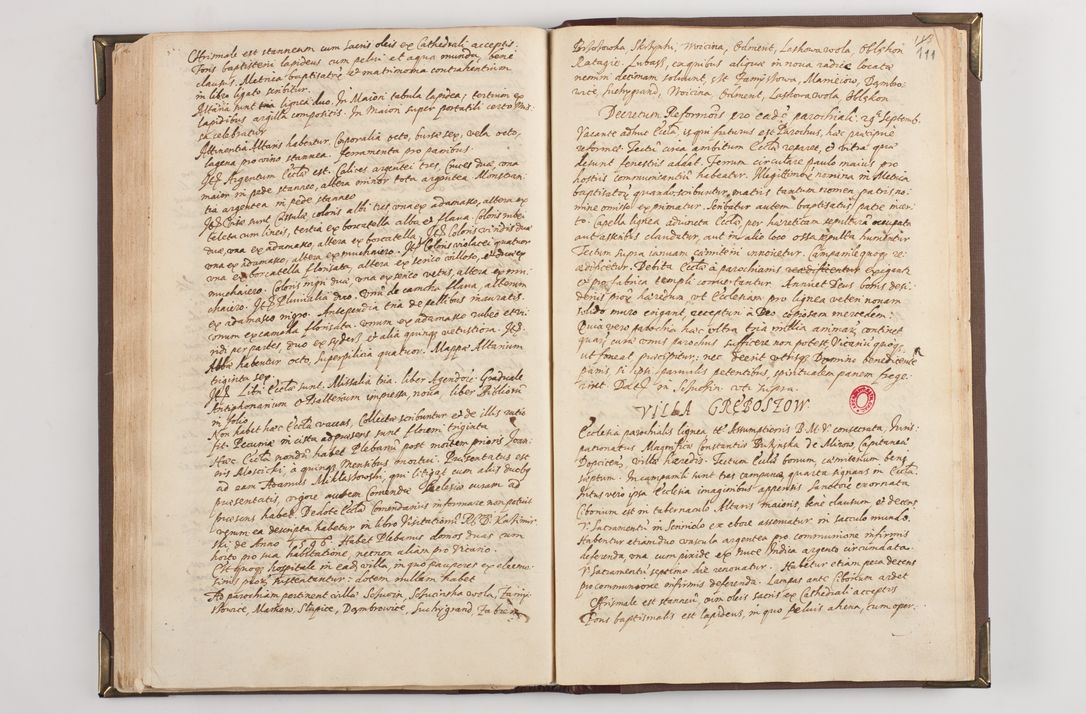 Chrismale est stanneum cum sacris oleis ex Cathedrali acceptis.
Fons baptisterii lapideus cum pelui et aqua munda, bene
clausus. Matrica baptisatorum et matrimonia contrahentium
in libro ligato scribitur.
Altaria sunt tria lignea duo. In Maiori tabula lapidea; tertium ex
lapidibus argilla compositis. In maiori super portatili certo Mis-
sa celebratur.
Attinentia Altaris habentur. Corporalia octo, bursæ sex, vela octo,
lagena pro vino stannea. ferramenta pro panibus.
Argentum Ecclæ est. Calices argentei tres, Cruces duæ, una
maior in pede stanneo, altera minor tota argentea. Monstran-
tia argentea in pede stanneo.
sunt Casulæ coloris albi tres una ex adamasco, altera ex
teleta cum lineis, tertia ex borcatella alba et flaua. Coloris rubei
duæ, una ex adamasco, altera ex borcatella. Coloris viridis duæ
una ex adamasco, altera ex muchaiero. Coloris violacei quatuor
una ex borcatella florisata, altera ex serico villoso, et duæ ex
muchaiero. Coloris nigri duæ una ex serico vetus, altera ex mu-
chaiero. Pluuialia duo. Unum de camcha flaua, alterum
ex adamasco nigro. Antependia tria de pellibus inauratis.
unum ex camcha florisata. unum ex adamasco rubeo et vi-
ridi per partes duo ex et alia quinque vetustiora.
Albæ habentur octo, superpellicia quatuor. Mappæ Altarium
triginta sex.
Libri Ecclæ sunt. Missalia tria. liber Agendorum. Graduale
Antiphonarium et Psalterium impressa noua, liber Bibliorum
in folio.
Non habet hæc Eccla vaccas. Collectæ scribuntur et de illis ratio
fit. Pecuniæ in cista ad præsens sunt floreni triginta.
Hæc Eccla nondum habet Plebanum post mortem prioris Joan-
nis Moscicki à quinque Mensibus mortui. Præsentatus est
ad eam Adamus Miklaszowski, qui litigat cum aliis duobus
præsentatis, vigore autem Comendæ Ecclesiæ curam ad
præsens habet. De dote Ecclæ Comendarius informare non potuit
verum ea descripta habetur in libro Visitationis R. D. Kazimir-
ski de Anno 1596. Habet Plebanus domos duas cum
horto pro sua habitatione, necnon aliam pro Vicario.
Est quoque hospitale in eadem villa, in quo pauperes ex eleemo-
sinis piorum sustentantur: dotem nullam habet.
Ad parochiam pertinent villæ Sczucin, Sczucinska wola, Zamys-
slowice, Maniow, Slupiec, Dąmbrowice, Suchygrund, Zabrze
111
Brzozowka, Skrzynki, Woicina, Odmient, Laskowa wola, Oblekon
Ratagie. Lubasz, ex quibus aliquæ in noua radice locatæ
nemini decimam soluunt, est Zamyslowa, Maniciow, Dąmbro-
wice, Suchygrund, Woicina, Odmient, Laskowa wola, Oblekon
Decretum Reformationis pro eadem parochiali. 29 Septemb.
Vacante adhuc Eccla, is qui futurus est Parochus, hæc præcipuè
reformet. Tecti circa ambitum Ecclæ reparet, et vitra quæ
desunt fenestris addat. Ferrum circulare paulo maius pro
hostiis communicantium habeatur. Illegitimorum nomina in Metrica
baptisatorum quando scribuntur, matris tantum nomen, patris no-
mine omisso exprimatur. Scribatur autem baptisatus patre incer-
to. Capella lignea adiuncta Ecclæ per hæreticam sepulturam occupata
aut assatibus claudatur, aut in alio loco ossa sepulta humentur.
Tectum supra ianuam cæmiterii innouetur. Campanile quoque re-
ædificetur. Debita Ecclæ à parochianis exigantur
et pro fabrica templi conuertantur. Annuat Deus bonis desi-
deriis piorum hæredum, ut Ecclesiam pro lignea veteri nouam
solido muro erigant, recepturi à Deo copiosam mercedem.
Quia vero parochia hæc ultra tria millia animarum continet
quarum curæ unus parochus sufficere non potest, Vicarius quoque
ut foueat præscipitur: nec deerit utrisque Domino benedicente
panis si ipsi paruulis petentibus, spiritualem panem frege-
rint. Dat. in Sczucin. uti supra.
VILLA GRĘBOSZOW
Ecclesia parochialis lignea tt. Assumptionis B. M. V. consecrata, Juris-
patronatus Magnificæ Constantiæ Buzynska de Mirow, Capitaneæ
Dopicens, villæ hæredis. Tectum Ecclæ bonum, cæmiterium bene
septum. In campanili sunt tres campanæ, quarta signans in Eccla.
Intus vero ipsa Ecclesia imaginibus appensis Sanctorum exornata.
Ciborium est in tabernaculo Altaris maioris, bene clausum et decens.
V. Sacramentum in Scriniolo ex ebore asseruatur in sacculo mundo.
Habentur etiam duo vascula argentea pro communione infirmis
deferenda, una cum pixide ex Nuce Indica argento circumdata.
V. Sacramentum septimo die renouatur. Habetur etiam pera decens
pro communione infirmis deferenda. Lampas ante Ciborium ardet.
Chrismale est stanneum, cum oleis sacris ex Cathedrali acceptis
Fons baptismalis est lapideus, in quo peluis ahenea, cum oper-